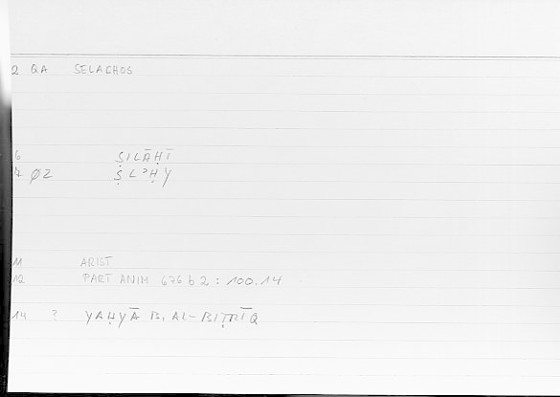 2 QA SELACHOS
6 ṢILĀḤĪ
7 Ø2 ṢLʾḤY
11 ARIST
12 PART ANIM 676 b 2 : 100.14
14 ? YAḤYĀ B. AL-BIṬRĪQ